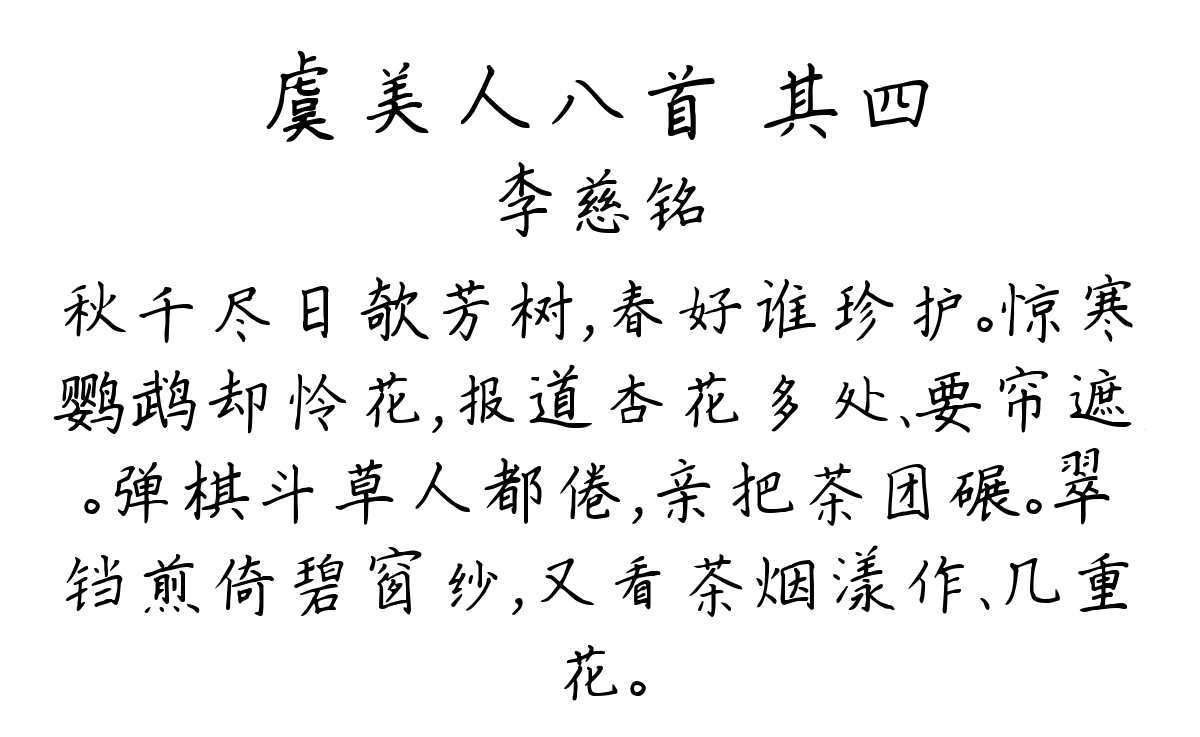 虞美人八首 其四
李慈铭
秋千尽日欹芳树,春好谁珍护。惊寒
鹦鹉却怜花,报道杏花多处、要帘遮
。弹棋斗草人都倦,亲把茶团碾。翠
铛煎倚碧窗纱,又看茶烟漾作、几重
花。